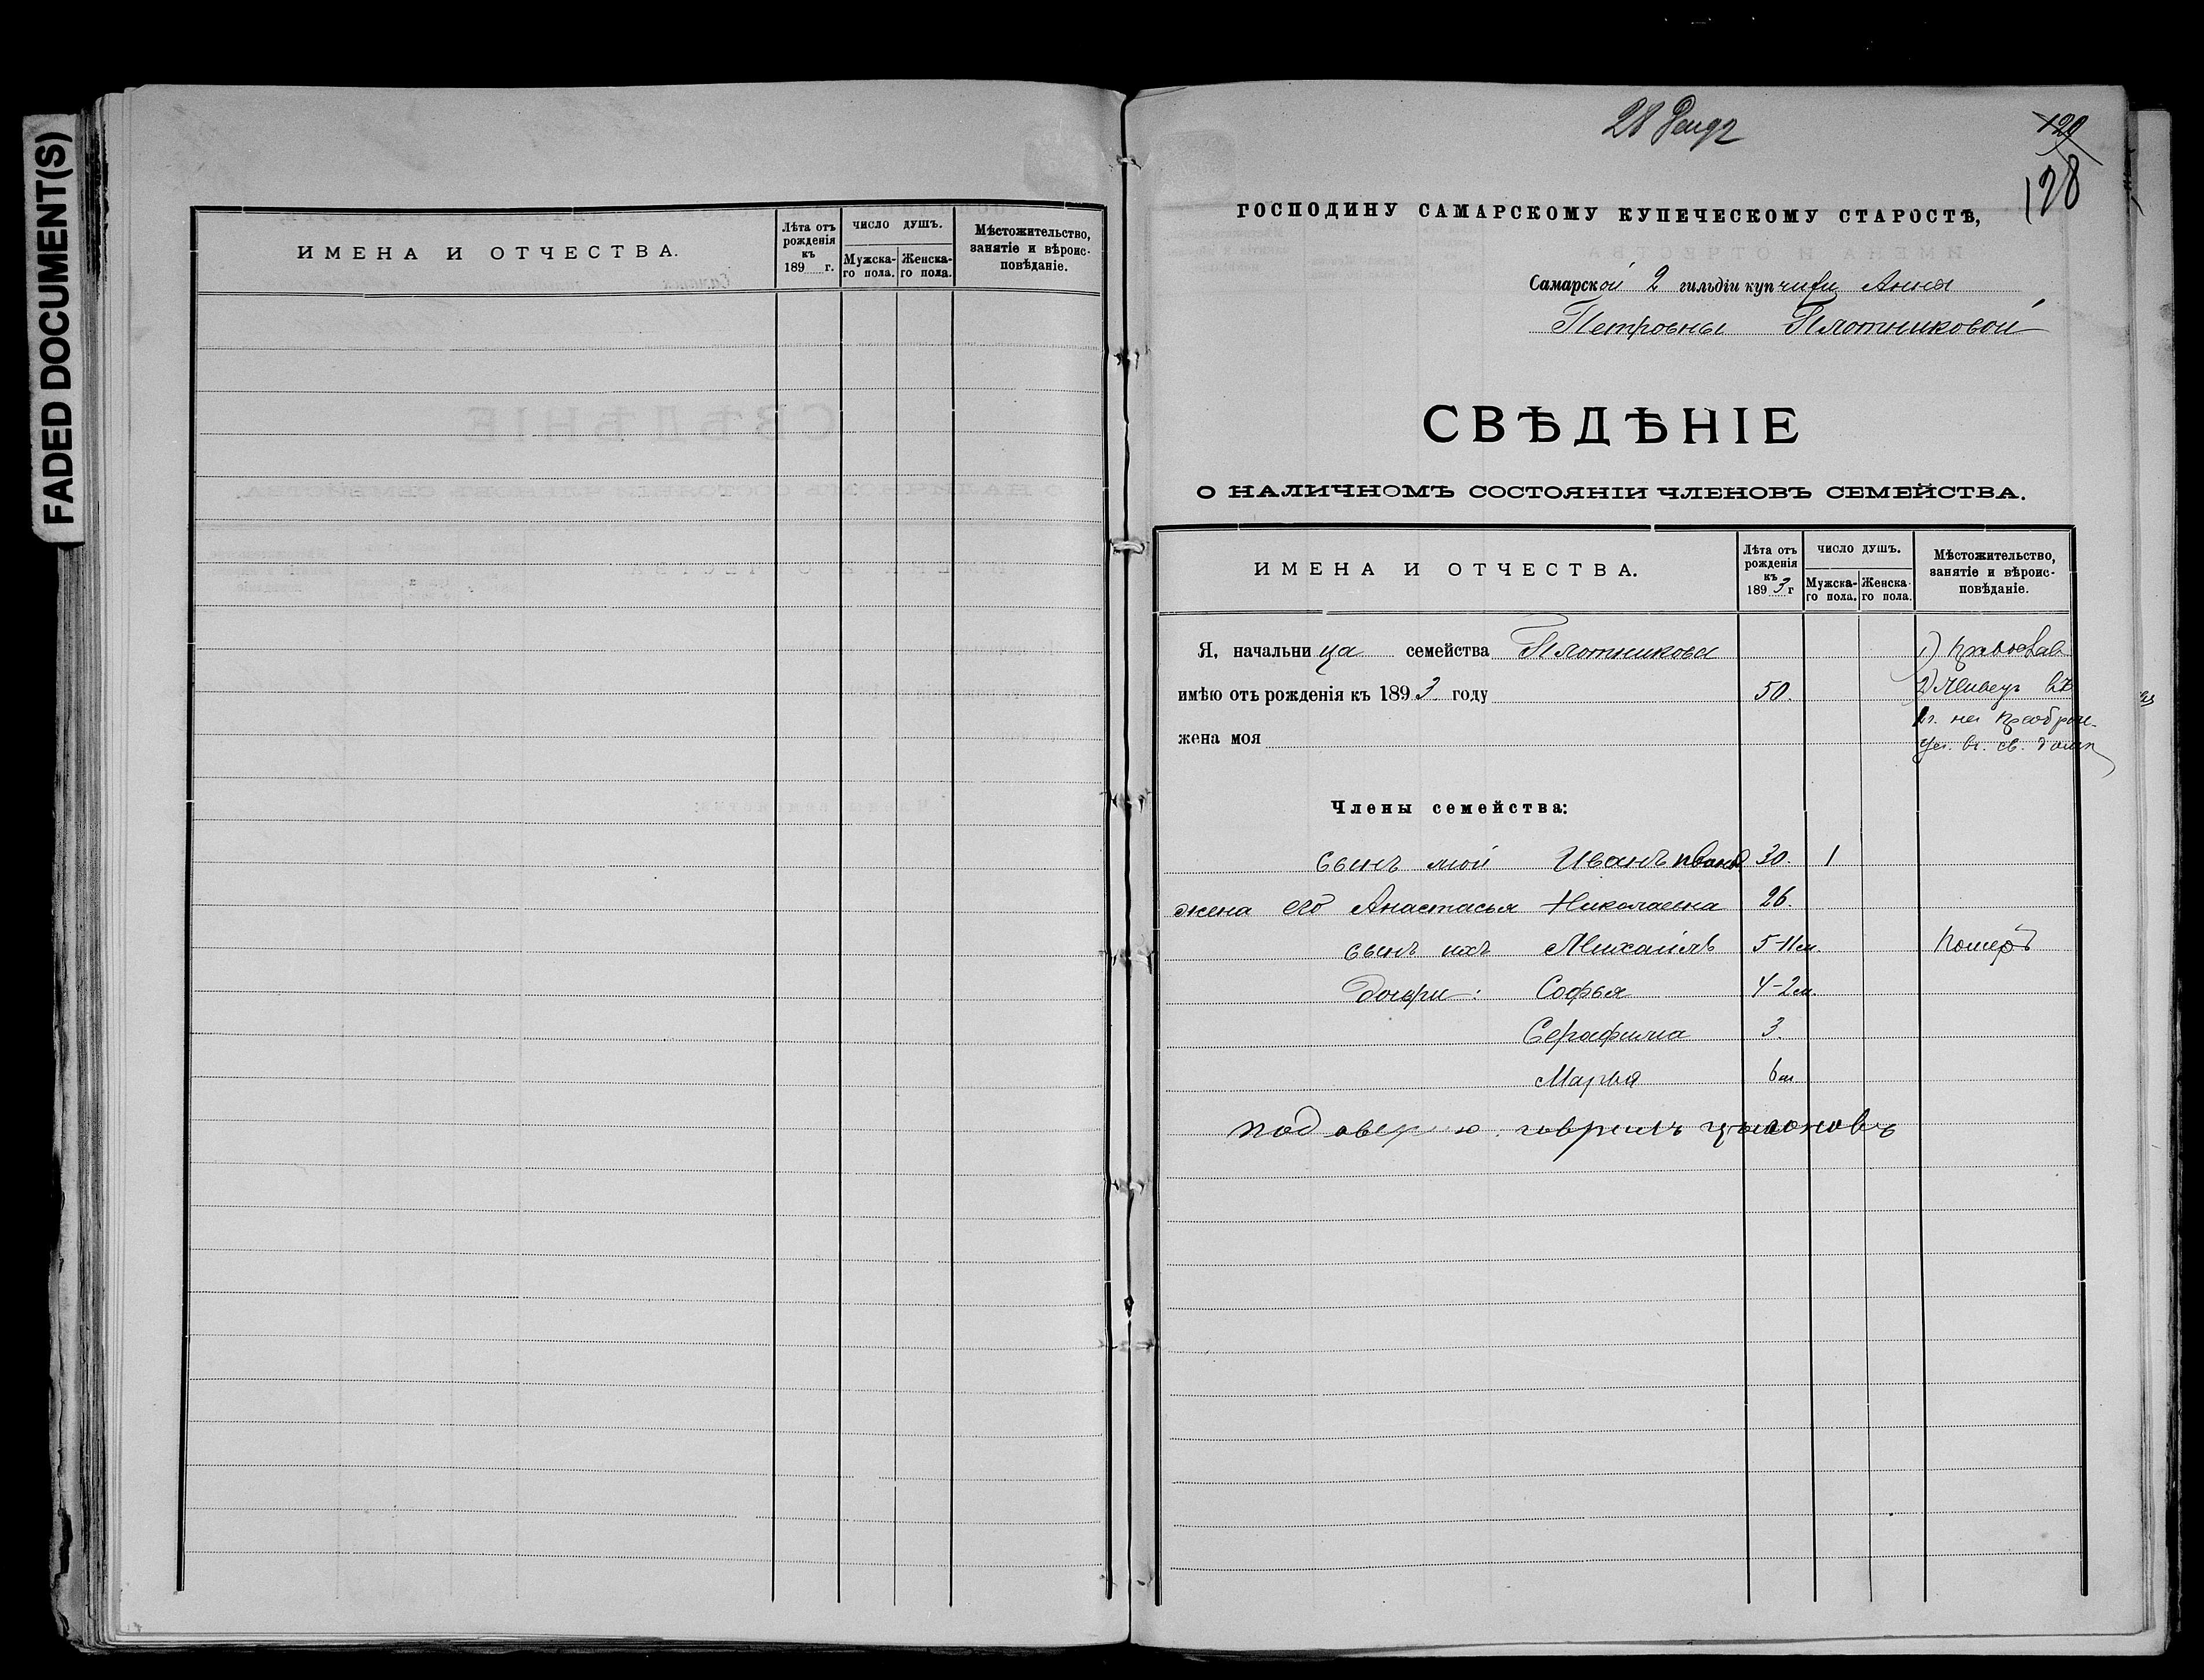 FADED DOCUMENT(S)
ИМЕНА И ОТЧЕСТВА.
Лѣта отъ рожденія къ 189 г.
ЧИСЛО ДУШЪ.
Мужска-го пола.
Женска-го пола.
Мѣстожительство, занятіе и вѣроис-повѣданіе.
28
129
128
ГОСПОДИНУ САМАРСКОМУ КУПЕЧЕСКОМУ СТАРОСТѢ,
Самарской 2 гильдіи купчихи Анна
Петровны Плотниковой
СВѢДѢНІЕ
О НАЛИЧНОМЪ СОСТОЯНІИ ЧЛЕНОВЪ СЕМЕЙСТВА.
ИМЕНА И ОТЧЕСТВА.
Лѣта отъ рожденія къ 1893 г
ЧИСЛО ДУШЪ.
Мужска-го пола.
Женска-го пола.
Мѣстожительство, занятіе и вѣроис-повѣданіе.
Я, начальница семейства Плотникова
1) Православ
имѣю отъ рожденія къ 1893 году 50.
2) Живетъ въ
на Преображ.
жена моя
ул. въ св. домѣ
Члены семейства:
Сынъ мой Иванъ Иванов 30. 1
жена его Анастасья Николаевна 26.
сынъ ихъ Михаилъ 5-11 м. Померъ
Дочери: Софья 4-2 м.
Серафима 3.
Марья 6 м.